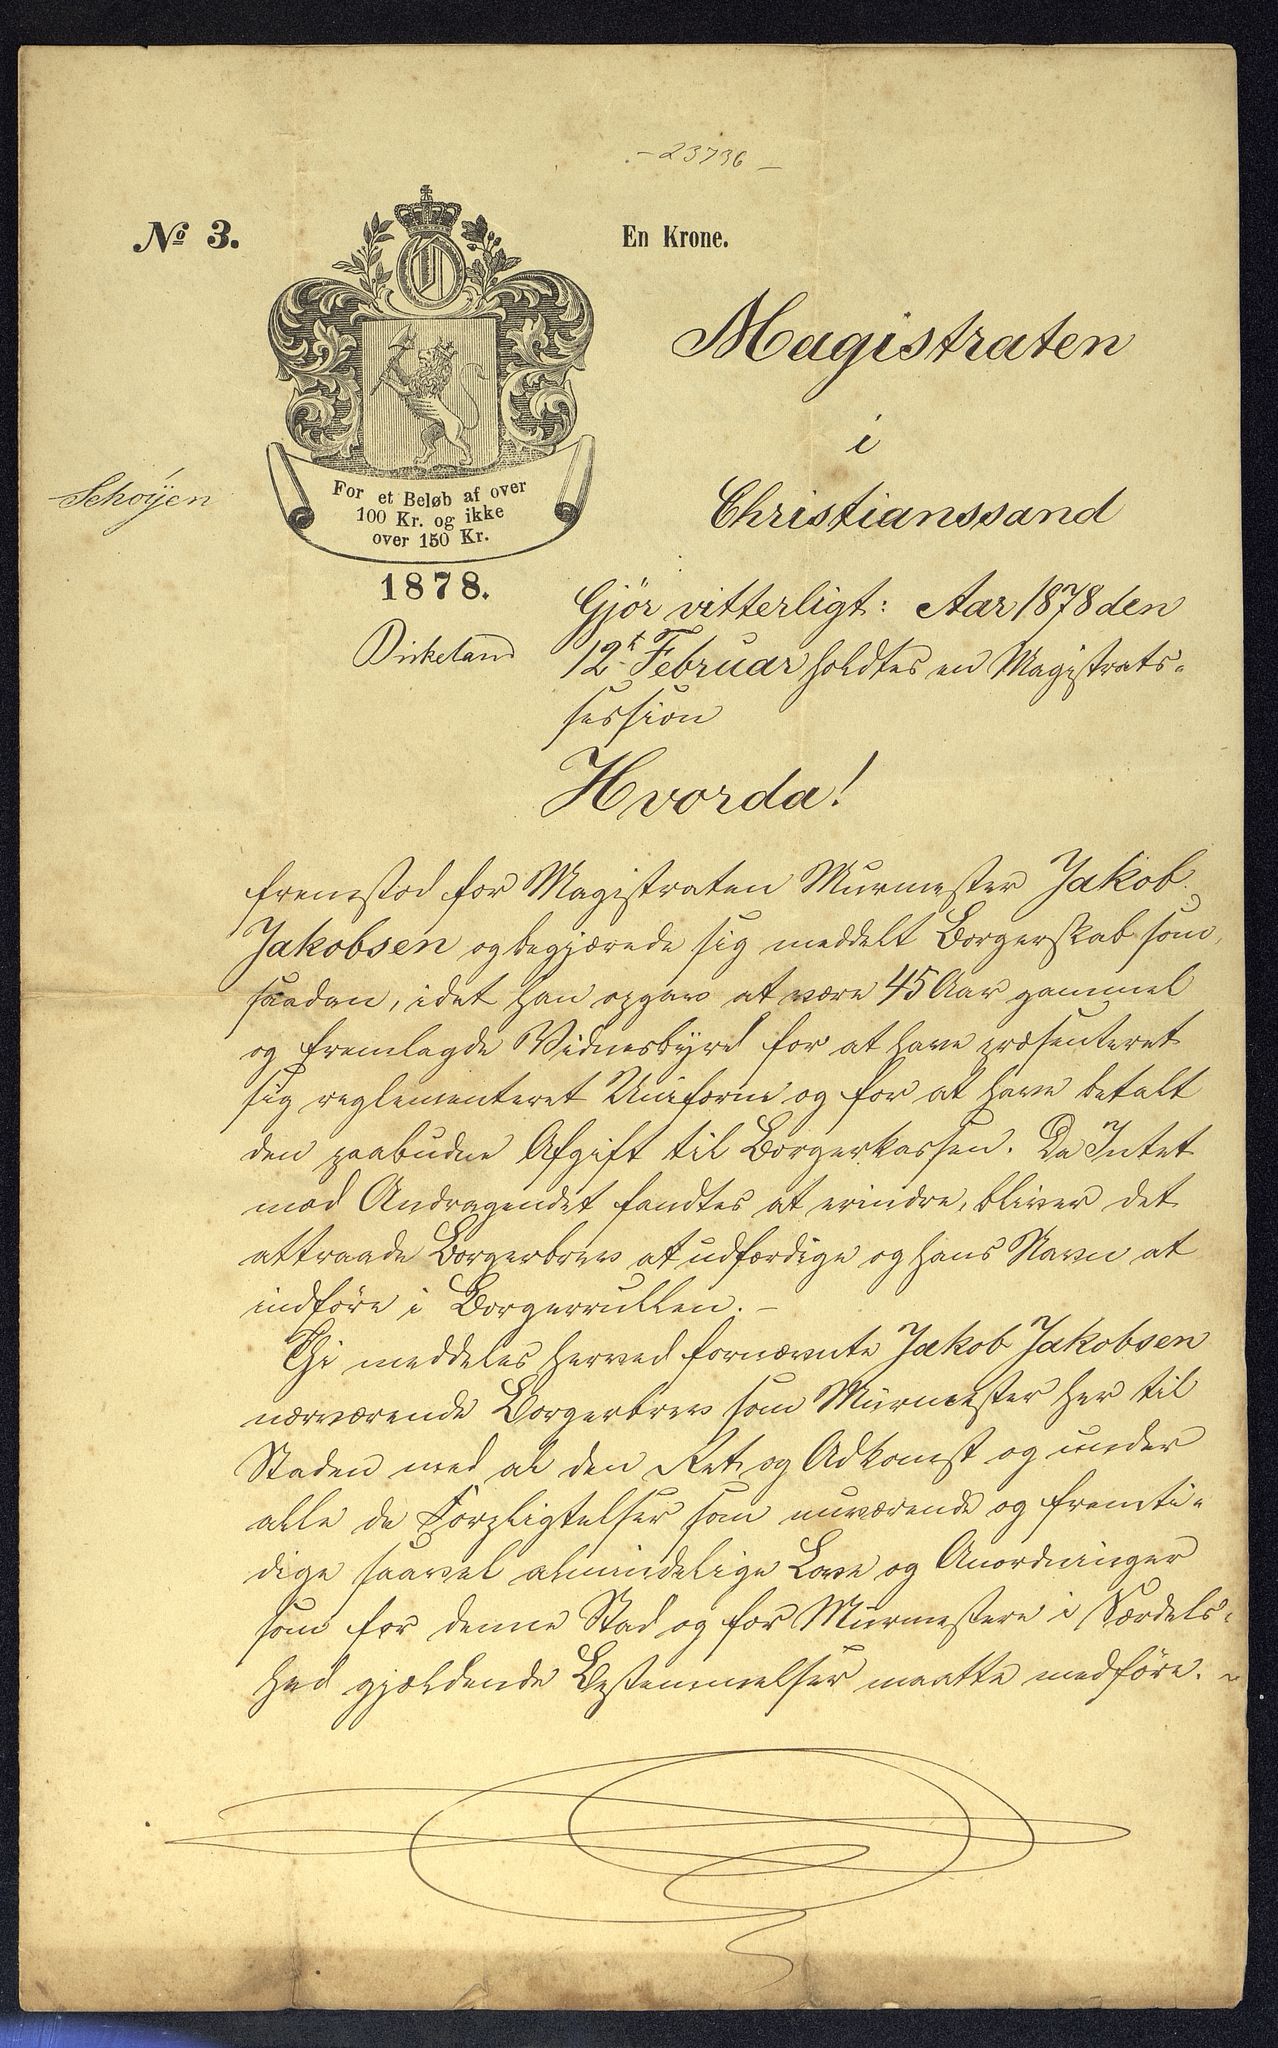 - 23736 -
No 3.
En Krone.
Magistraten
i
Christianssand
Schøyen
For et Beløb af over
100 Kr. og ikke
over 150 Kr.
1878.
Birkeland
Gjör vitterligt: Aar 1878 den
12t Februar holdtes en Magistrats-
session
Hvorda!
fremstod for Magistraten Murmester Jakob
Jakobsen og begjærede sig meddelt Borgerskab som
saadan, idet han opgav at være 45 Aar gammel
og fremlagde Vidnesbyrd for at have præsenteret
sig reglementeret Uniform og for at have betalt
den paabudne Afgift til Borgerkassen. Da Intet
mod Andragendet fandtes at erindre, bliver det
attraade Borgerbrev at udfærdige og hans Navn at
indföre i Borgerrullen. -
Thi meddeles herved fornævnte Jakob Jakobsen
nærværende Borgerbrev som Murmester her til
Staden med al den Ret og Adkomst og under
alle de Forpligtelser som nuværende og fremti-
dige saavel almindelige Love og Anordninger
som for denne Stad og for Murmestere i Særdeles-
hed gjældende Bestemmelser maatte medföre. -